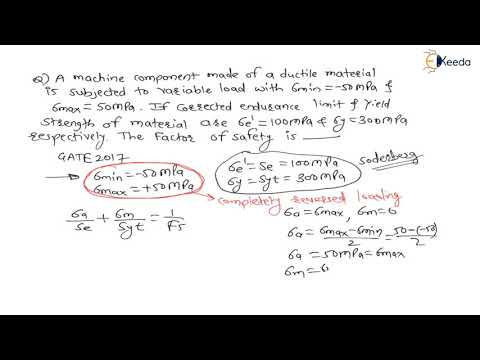 EKeeda
Q) A machine component made of a ductile material
is subjected to variable load with σmin = -50MPa &
σmax = 50MPa. If Corrected endurance limit & Yield
Strength of material are σe' = 100MPa & σy = 300MPa
respectively. The Factor of safety is ____
GATE 2017
→ σmin = -50MPa
σmax = +50MPa
σe' = Se = 100MPa
σy = Syt = 300MPa
Soderberg
completely reversed loading
σa/Se + σm/Syt = 1/Fs
σa = σmax, σm = 0
σa = σmax - σmin / 2 = 50-(-50) / 2
σa = 50MPa = σmax
σm = σ